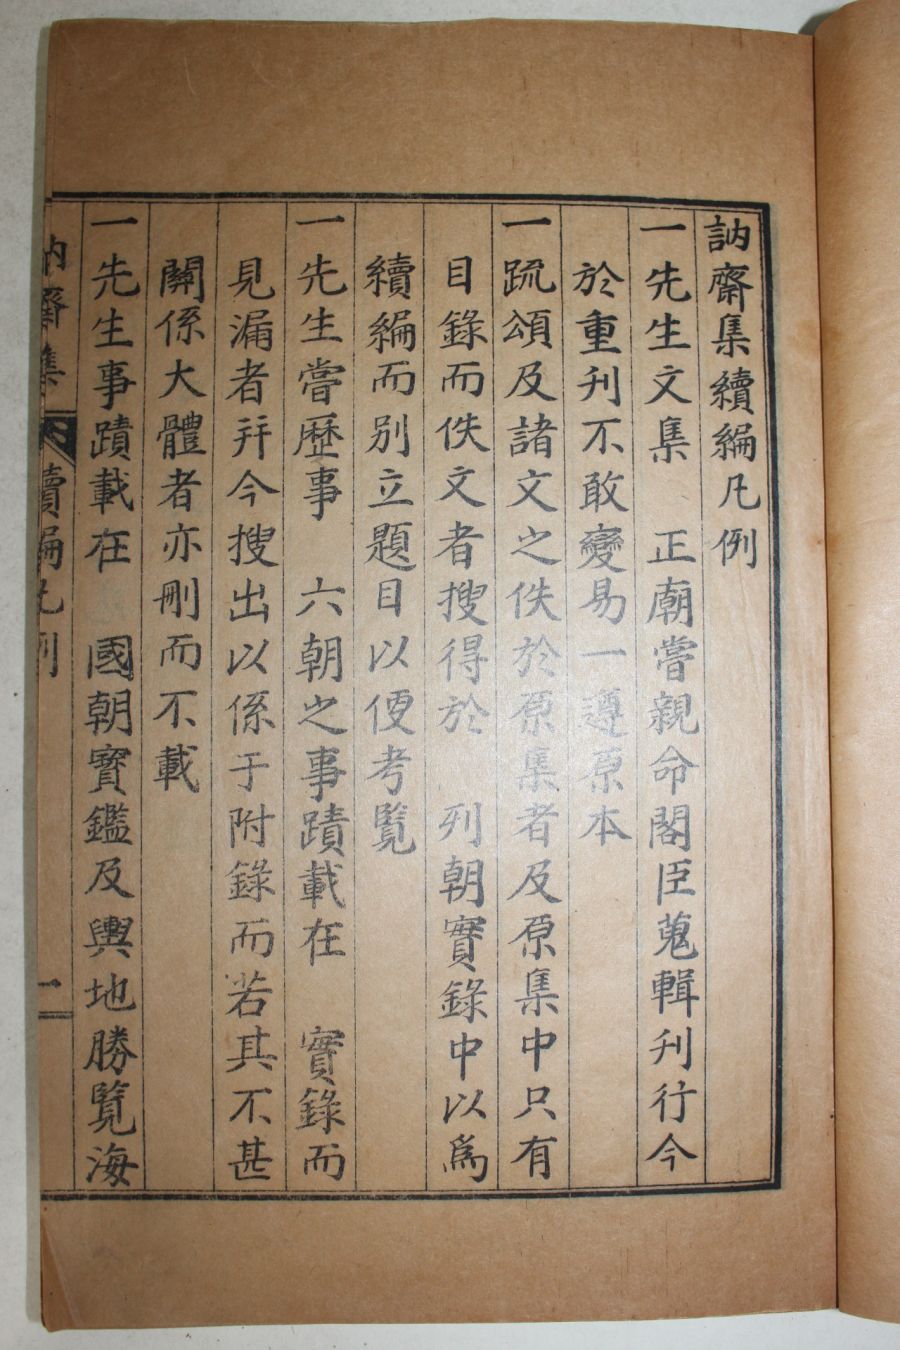 訥齋集續編凡例
一先生文集　正廟嘗親命閣臣蒐輯刊行今
於重刋不敢變易一遵原本
一疏頌及諸文之佚於原集者及原集中只有
目錄而佚文者搜得於　列朝實錄中以爲
續編而別立題目以便考覽
一先生嘗歷事　六朝之事蹟載在　實錄而
見漏者幷今搜出以係于附錄而若其不甚
關係大體者亦刪而不載
一先生事蹟載在　國朝寶鑑及輿地勝覽海
訥齋集　續編凡例　一